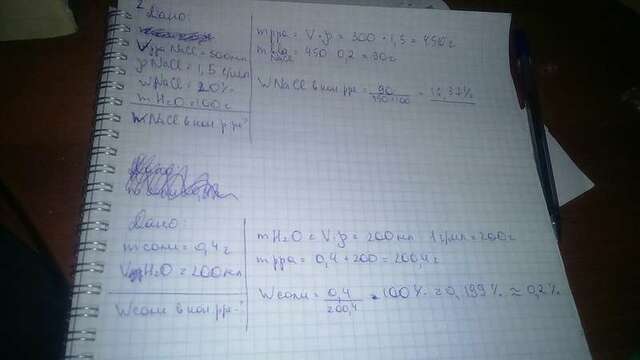 2
Дано:
V р-ра NaCl = 300мл
ρ NaCl = 1,5 г/мл
w NaCl = 20%
m H2O = 100г
w NaCl в кон р-ре-?
m р-ра = V · ρ = 300 · 1,5 = 450г
m NaCl = 450 · 0,2 = 90г
w NaCl в кон р-ре = 90 / 450+100 = 16,37%
Дано:
m соли = 0,4г
V H2O = 200мл
w соли в кон р-ре-?
m H2O = V·ρ = 200мл · 1г/мл = 200г
m р-ра = 0,4 + 200 = 200,4г
w соли = 0,4 / 200,4 · 100% = 0,199% ≈ 0,2%